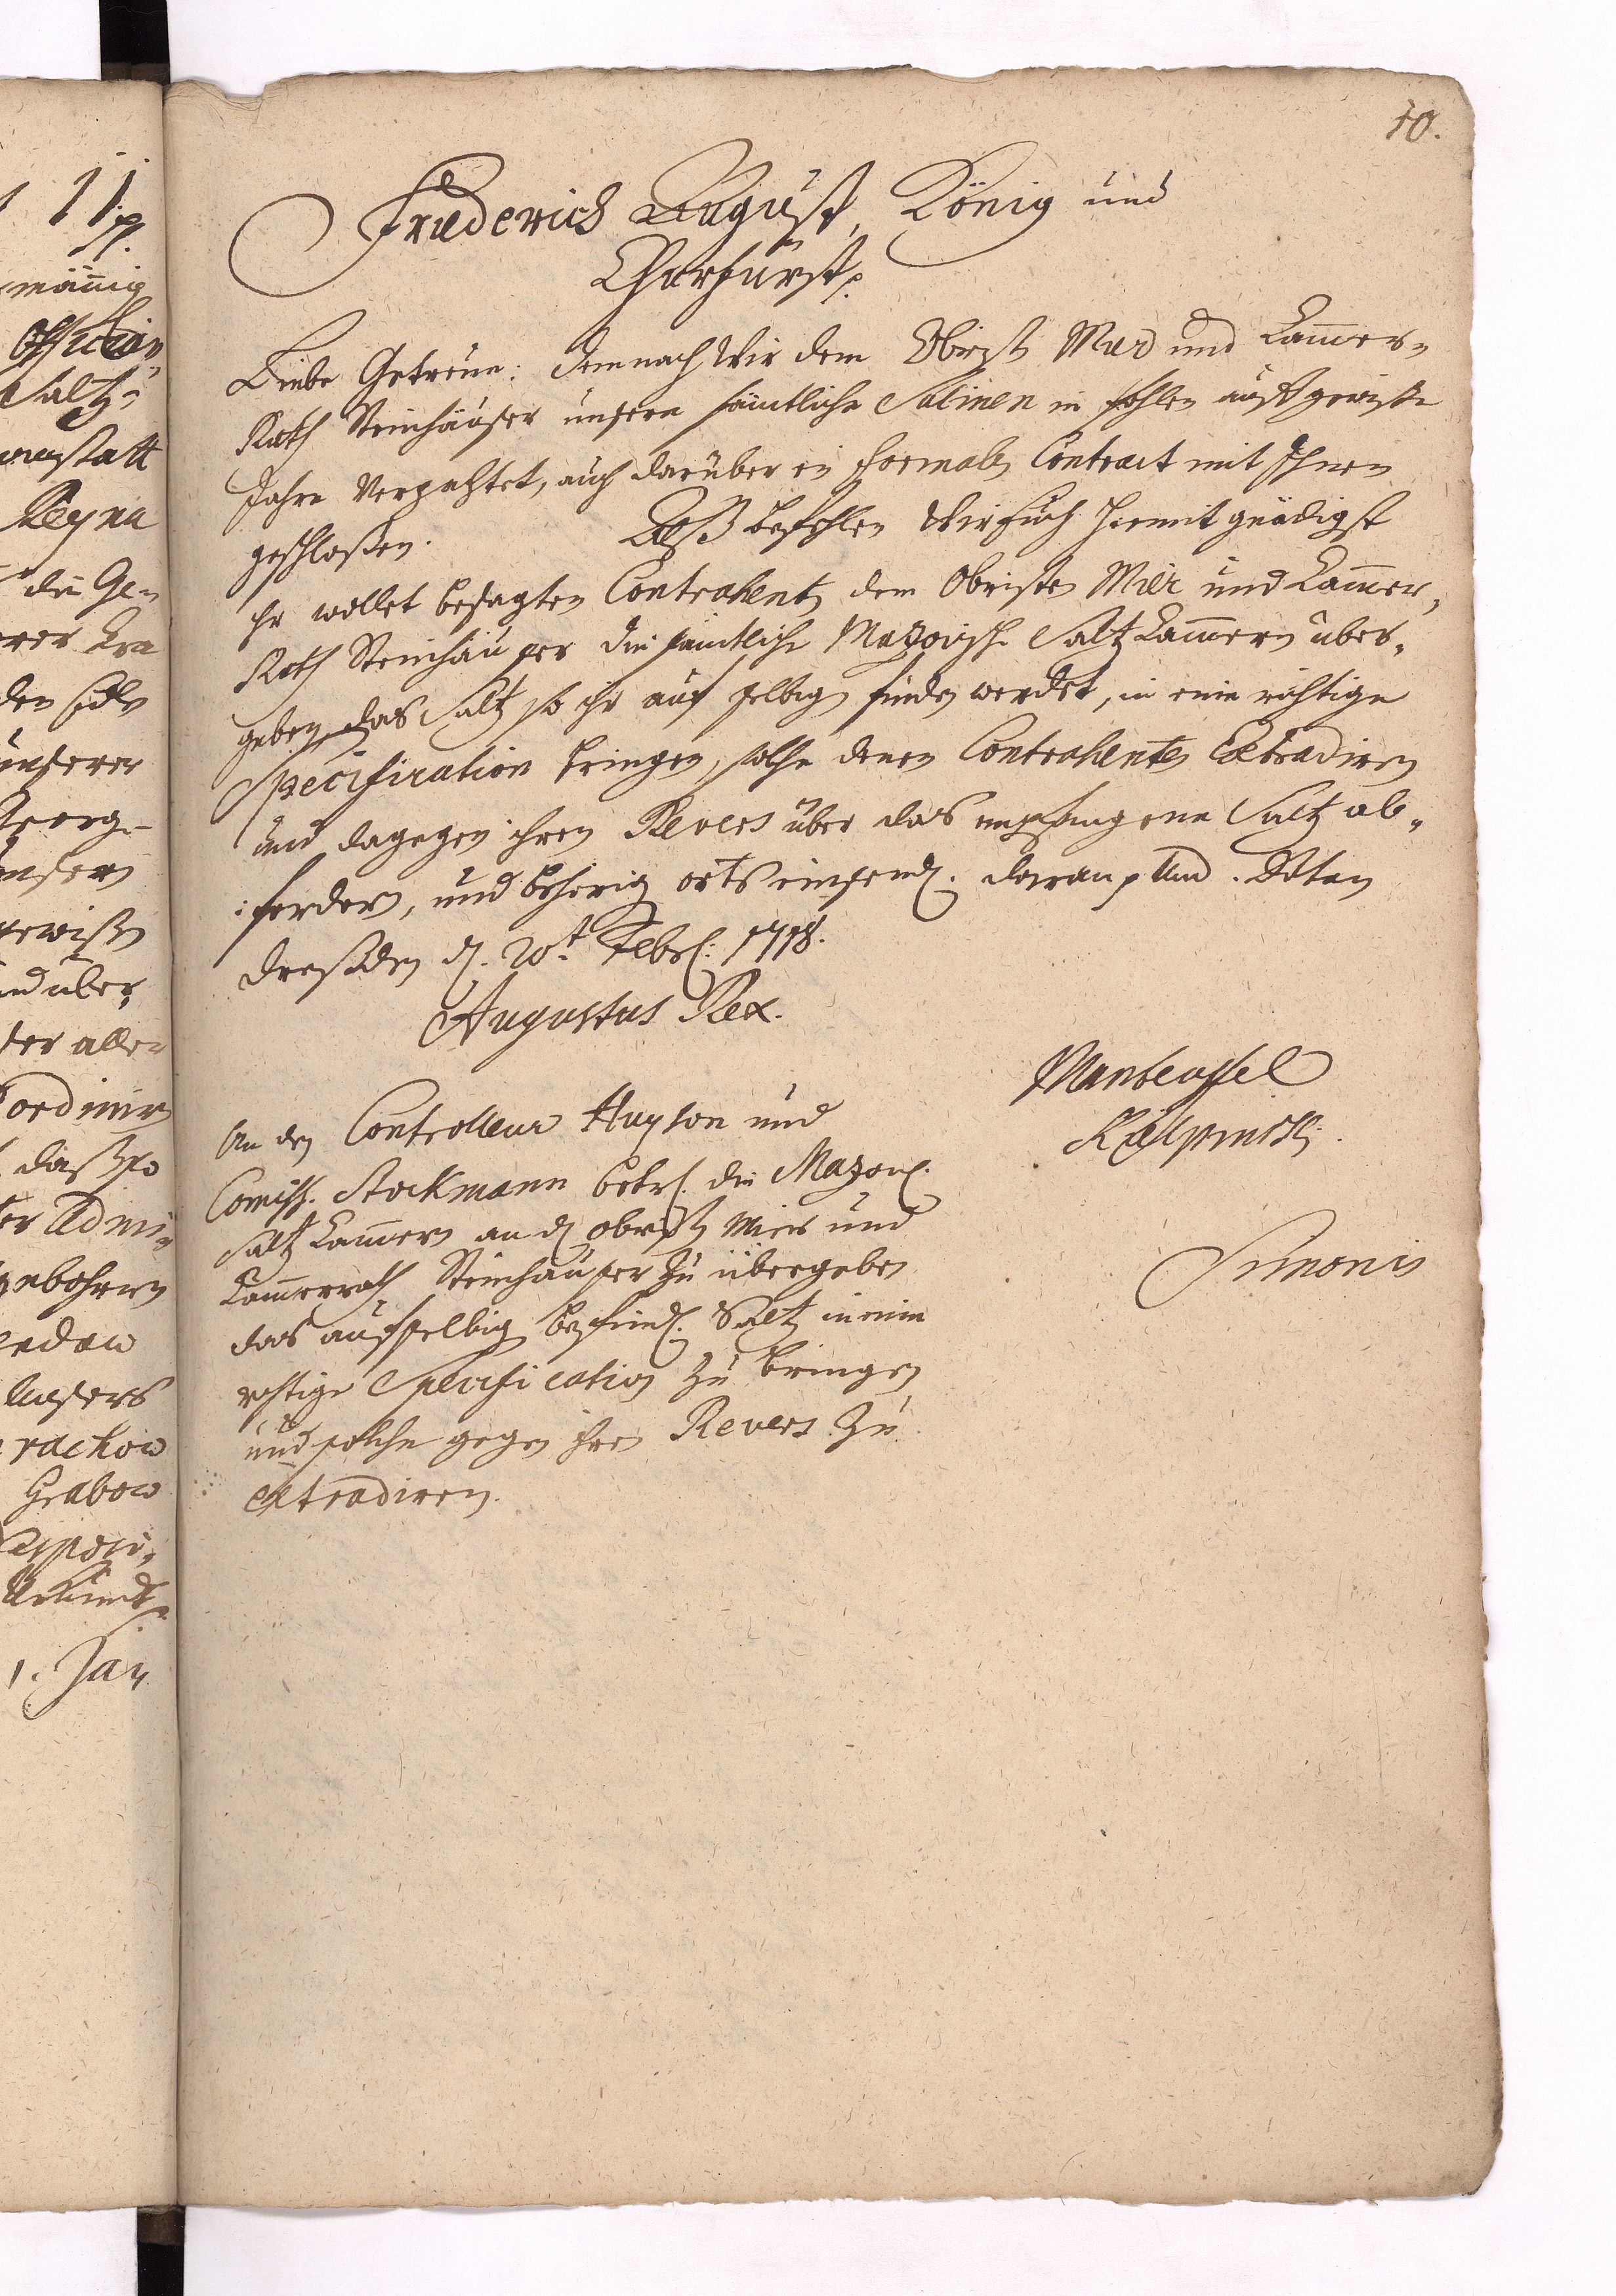 10.
Friederich August, König und
Churfürst p.
Liebe Getreüe: demnach Wir dem Obrist Mier und Cammer-
Rath Steinhäuser unsere sämtliche Salinen in Pohlen auf gewiße
Jahre Verpachtet, auch darüber ein formalen Contract mit Ihnen
geschloßen. Alß befehlen Wir Euch hiermit gnädigst
Ihr wollet besagten Contrahenten dem Obristen Mier und Cammer,
Rath Steinhäuser die sämtliche Mazovische Saltz Cammern über,
geben, das Saltz so ihr auf selbigen finden werdet, in eine richtige
Specification bringen, solche denen Contrahenten Extradiren
und dagegen ihren Revers über das empfangene Saltz ab,
fordern, und behörig orts einsend. daran p Und. Datum
Dreßden d. 20t. Febr: 1718.
Augustus Rex.
Manteuffel
An den Controlleur und
Comiss. Stockmann betr. die Mazov.
Saltz Cammern an d. obrist Mier und
Cammerrath Steinhäuser zu übergeben
das auf selbigen befindl. Saltz in eine
richtige Specification zu bringen
und solche gegen ihren Revers zu
extradiren.
Simonis
11
p.
männig
Offician,
Saltz-
statt
Reyna
die Ge-
unserer
unsern
gewißen
und über,
der aller
ordinirn
daß so
der Admi-
gebohrnen
Unsers
rackow
Grabow
1. Jan